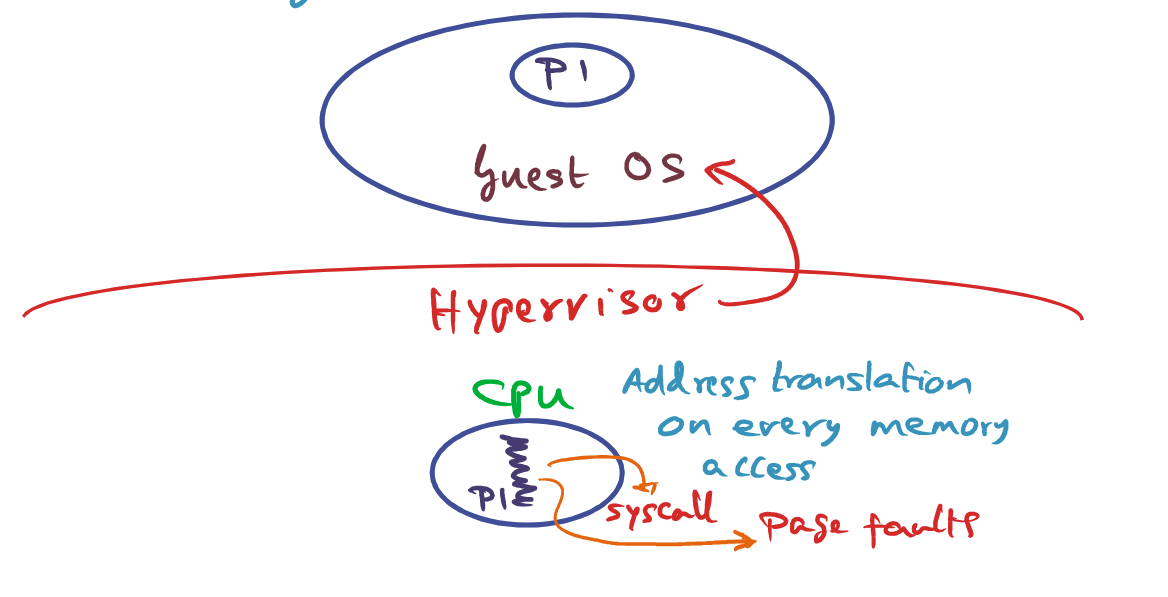 P1
Guest OS
Hypervisor
CPU
Address translation
on every memory
access
P1
syscall
Page faults